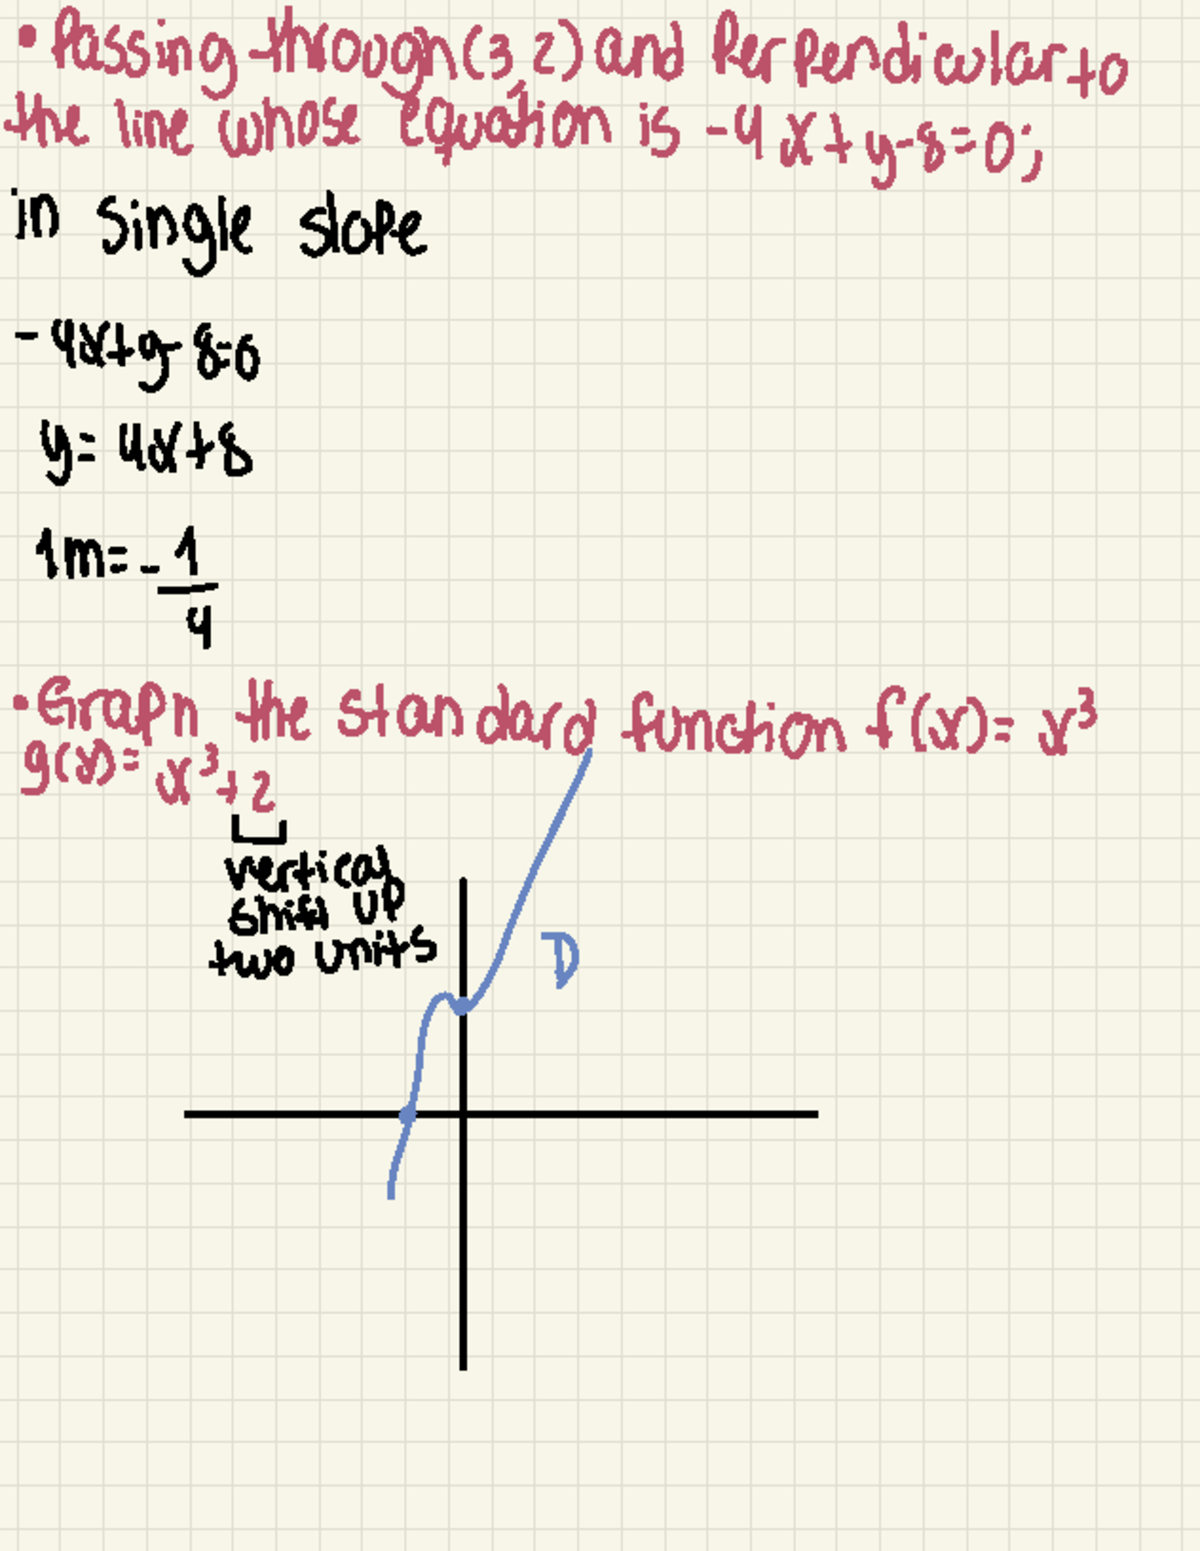 • Passing through (3,2) and Perpendicular to
the line whose equation is -4x+y-8=0;
in single slope
-4x+y-8=0
y=4x+8
1m=-1/4
• Graph the standard function f(x)=x³
g(x)=x³+2
vertical
shift up
two units
D